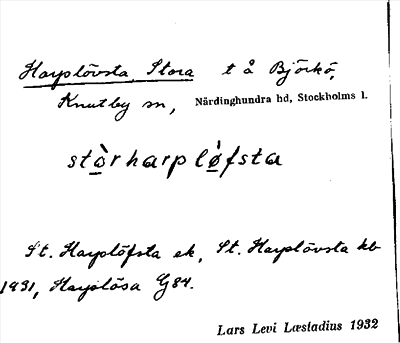 Harplövsta, Stora t å Björkö,
Knutby sn, Närdinghundra hd, Stockholms l.
stòrharplø̀fsta
St. Harplöfsta ek, St. Harplövsta kb
1931, Harplösa G84.
Lars Levi Læstadius 1932